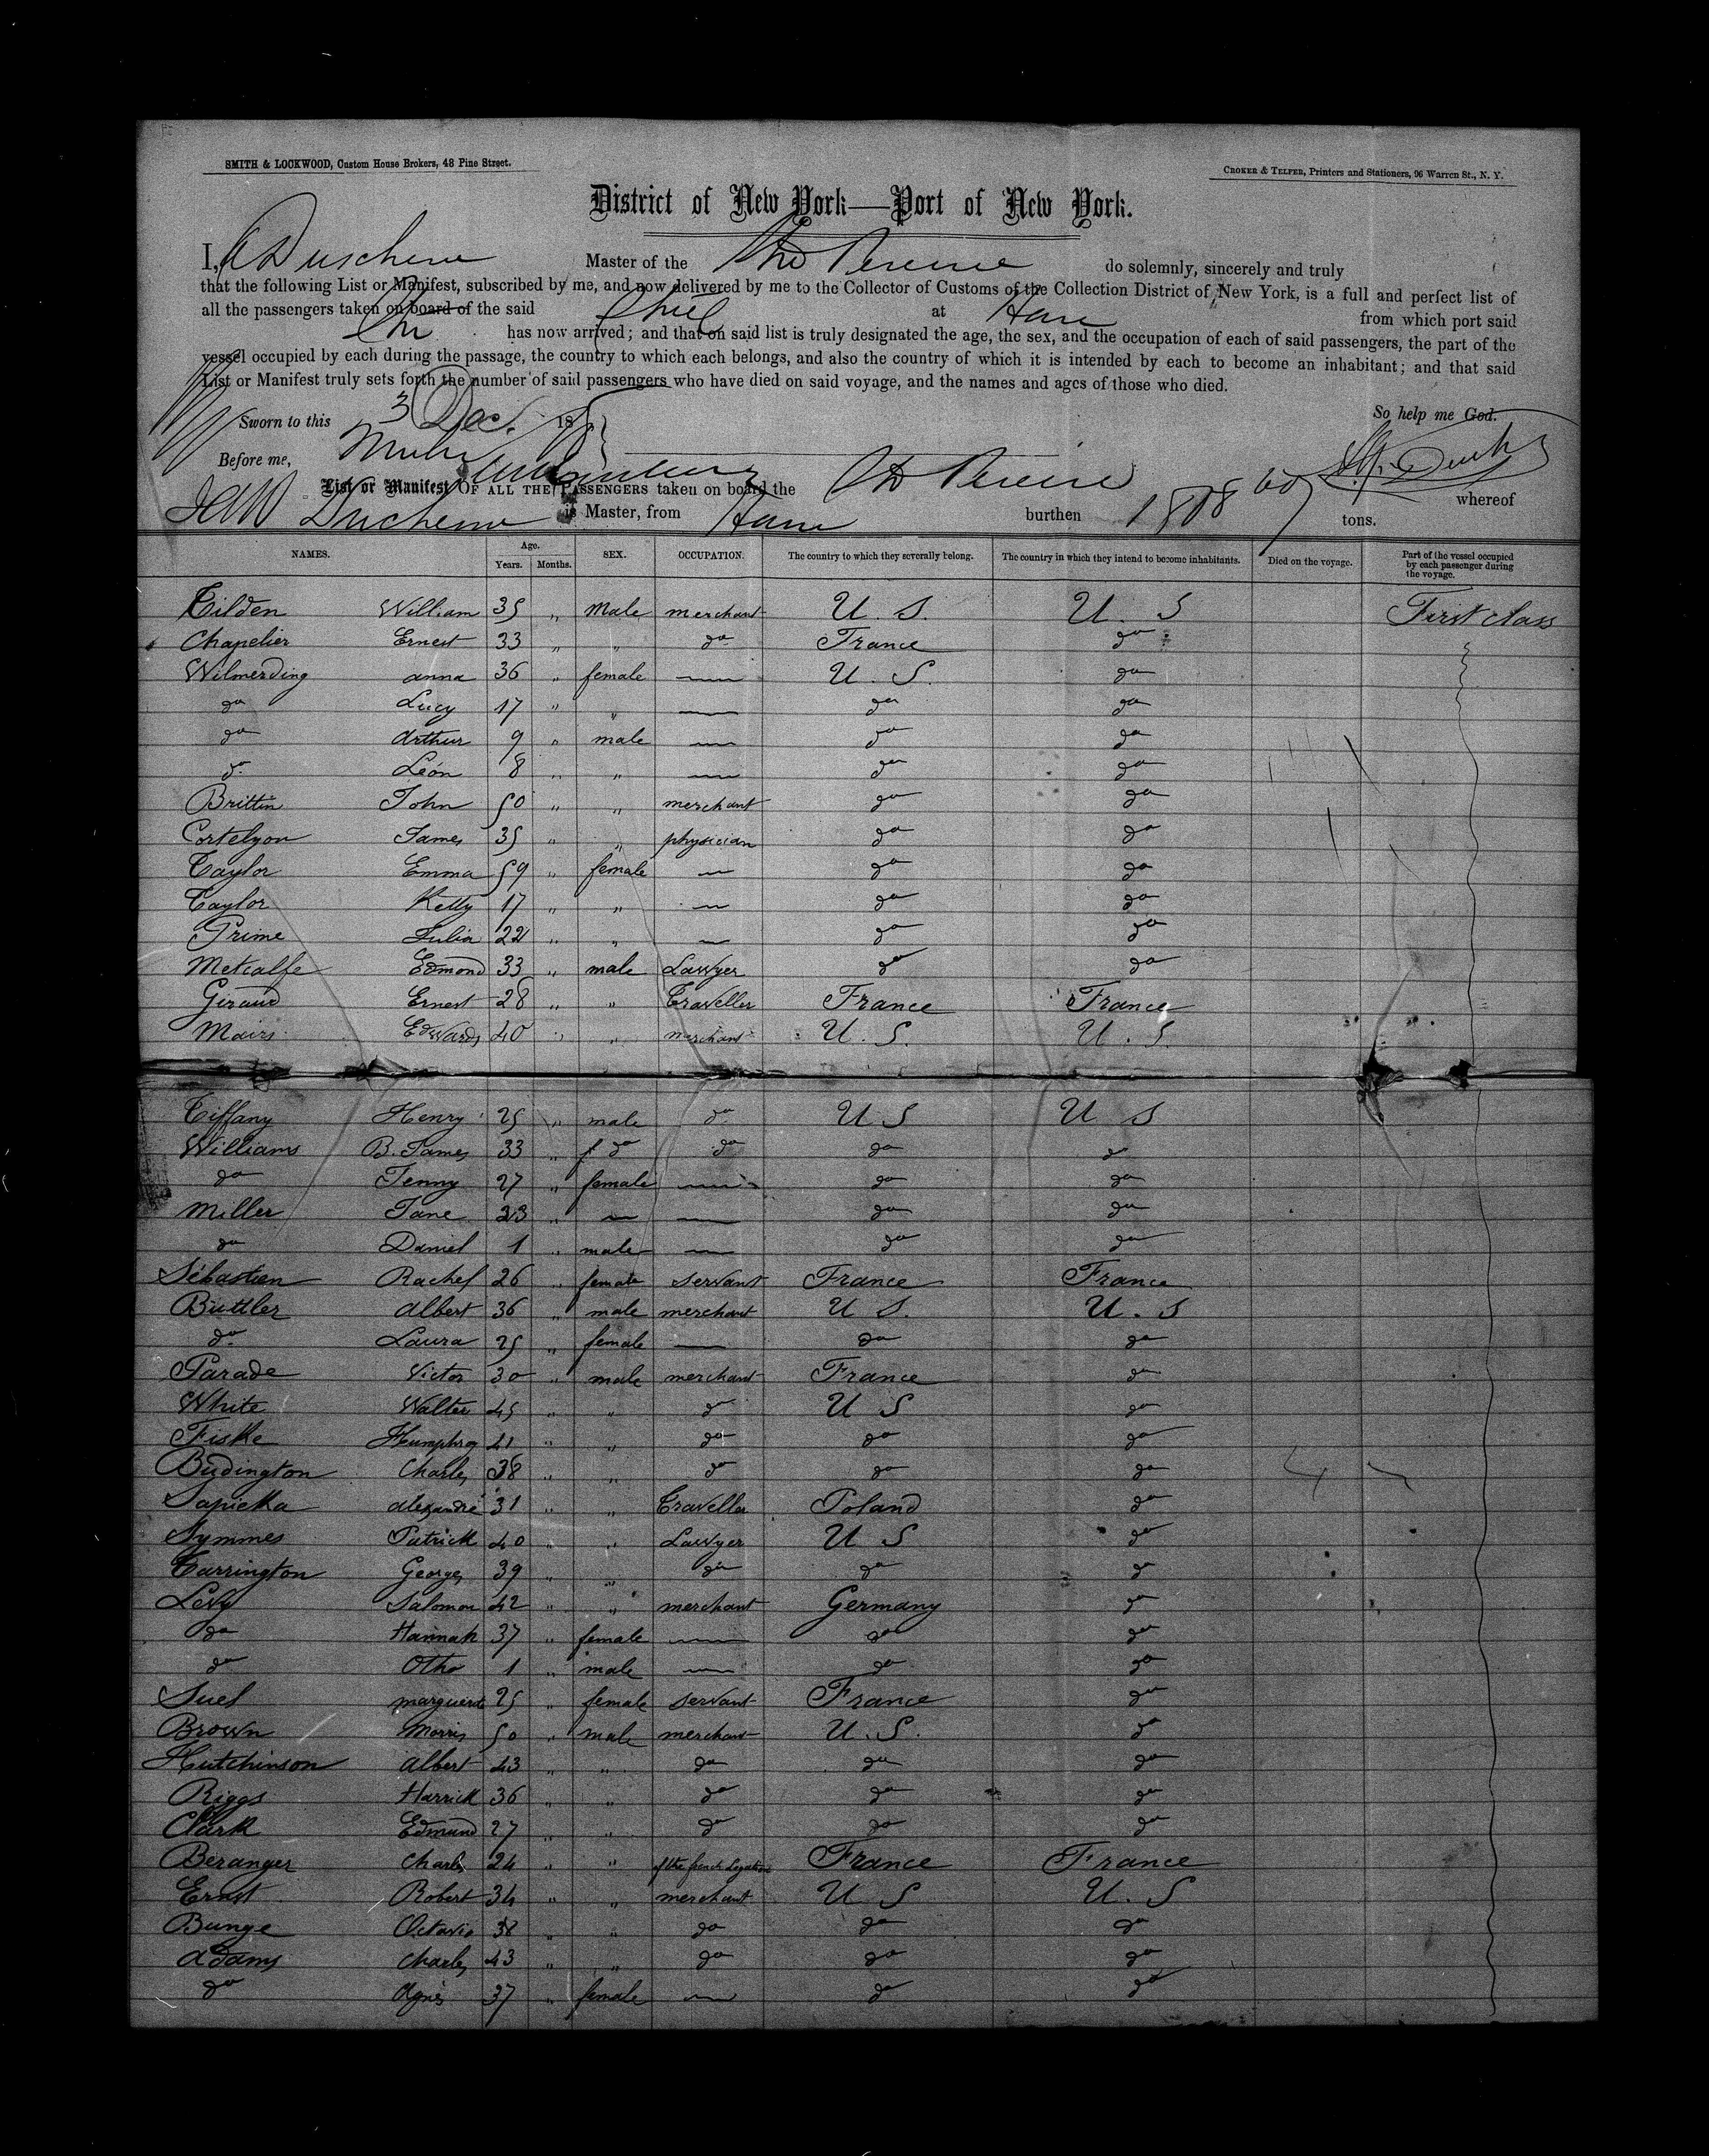 SMITH & LOCKWOOD, Custom House Brokers, 48 Pine Street.
CROKER & TELFER, Printers and Stationers, 96 Warren St., N. Y.
District of New York—Port of New York.
I, A Duschene Master of the Pereire do solemnly, sincerely and truly
that the following List or Manifest, subscribed by me, and now delivered by me to the Collector of Customs of the Collection District of New York, is a full and perfect list of
all the passengers taken on board of the said at from which port said
has now arrived; and that on said list is truly designated the age, the sex, and the occupation of each of said passengers, the part of the
vessel occupied by each during the passage, the country to which each belongs, and also the country of which it is intended by each to become an inhabitant; and that said
List or Manifest truly sets forth the number of said passengers who have died on said voyage, and the names and ages of those who died.
Sworn to this 3 Dec. 18 So help me God.
Before me,
List or Manifest OF ALL THE PASSENGERS taken on board the Pereire whereof
Duchene is Master, from burthen tons.
NAMES. Age. Years. Months. SEX. OCCUPATION. The country to which they severally belong. The country in which they intend to become inhabitants. Died on the voyage. Part of the vessel occupied by each passenger during the voyage.
Tilden William 35 " Male merchant U. S. U. S First class
Chapelier Ernest 33 " " do France do
Wilmerding anna 36 " female — U. S. do
do Lucy 17 " " — do do
do Arthur 9 " male — do do
do Léon 8 " " — do do
Brittin John 50 " " merchant do do
Cortelyou James 35 " " physician do do
Taylor Emma 59 " female — do do
Taylor Ketty 17 " " — do do
Prime Julia 22 " " — do do
Metcalfe Edmond 33 " male Lawyer do do
Giraud Ernest 28 " " Traveller France France
Mairs Edwards 40 " " merchant U. S. U. S.
Tiffany Henry 25 " male do U S U S
Williams B. James 33 " do do do do
do Jenny 27 " female — do do
Miller Jane 23 " — — do do
do Daniel 1 " male — do do
Sébastien Rachel 26 " female servant France France
Buttler Albert 36 " male merchant U S. U. S
do Laura 25 " female — do do
Parade Victor 30 " male merchant France do
White Walter 45 " " do U S do
Fiske Humphrey 41 " " do do do
Budington Charles 38 " " do do do
Sapieka Alexandre 31 " " Traveller Poland do
Symmes Patrick 40 " " Lawyer U S do
Carrington Georges 39 " " do do do
Levy Salomon 42 " " merchant Germany do
do Hannah 37 " female — do do
do Otho 1 " male — do do
Suel marguerite 25 " female servant France do
Brown Morris 50 " male merchant U. S. do
Hutchinson Albert 43 " " do do do
Riggs Harrick 36 " " do do do
Clark Edmund 27 " " do do do
Beranger Charles 24 " " of the french Legation France France
Ernst Robert 34 " " merchant U S U. S
Bunge Octavio 38 " " do do do
Adams Charles 43 " " do do do
do Agnès 37 " female — do do